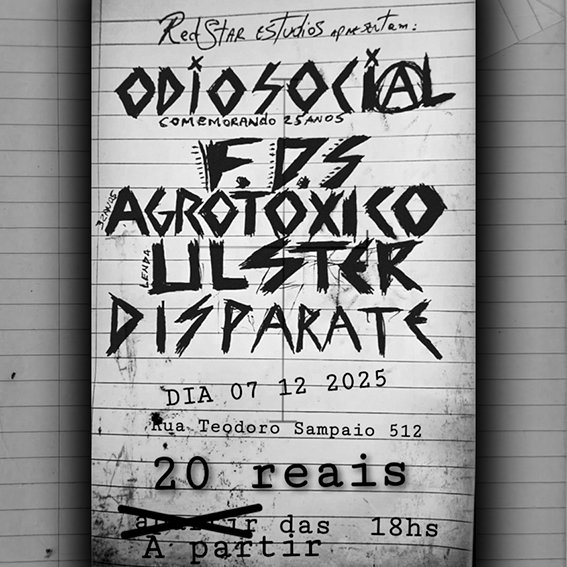 RedStar Estúdios apresentam:
ODIO SOCIAL
COMEMORANDO 25 ANOS
F.D.S
32 ANOS
AGROTOXICO
LENDA
ULSTER
DISPARATE
DIA 07 12 2025
Rua Teodoro Sampaio 512
20 reais
a partir das 18hs
A partir